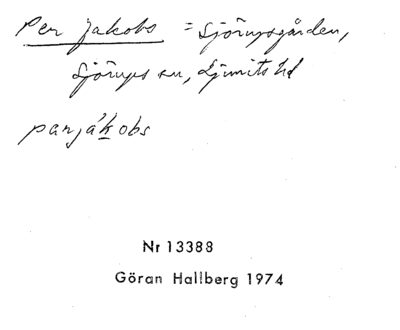 Per Jakobs = Sjörupsgården,
Sjörups sn, Ljunits hd
parjákobs
Nr 13388
Göran Hallberg 1974